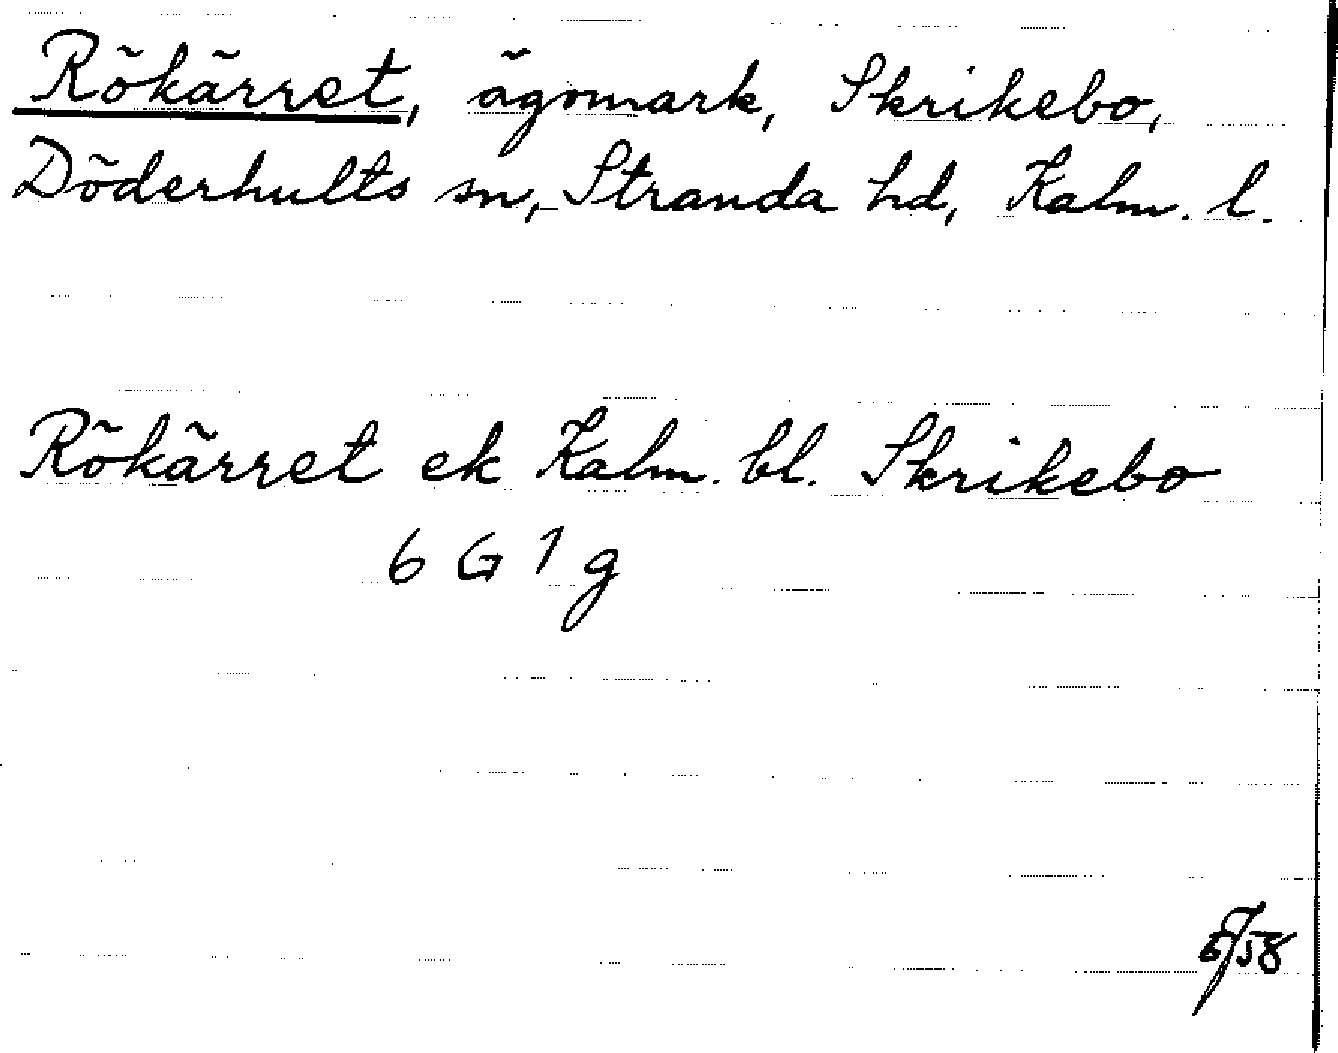 Rökärret, ägomark, Skrikebo,
Döderhults sn, Stranda hd, Kalm. l.
Rökärret ek Kalm. bl. Skrikebo
6 G 1 g